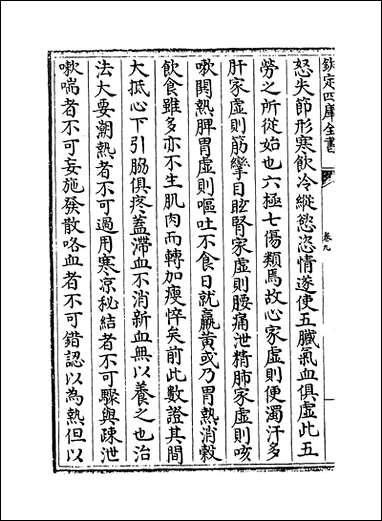 欽定四庫全書
卷九
怒失節形寒飲冷縱慾恣情遂使五臟氣血俱虛此五
勞之所從始也六極七傷類焉故心家虛則便濁汗多
肝家虛則筋攣目眩腎家虛則腰痛泄精肺家虛則咳
嗽閧熱脾胃虛則嘔吐不食日就羸黄或乃胃熱消榖
飲食雖多亦不生肌肉而轉加瘦悴矣前此數證其間
大抵心下引脇俱疼蓋滯血不消新血無以養之也治
法大要潮熱者不可過用寒凉秘結者不可驟與疎泄
嗽喘者不可妄施發散咯血者不可錯認以為熱但以